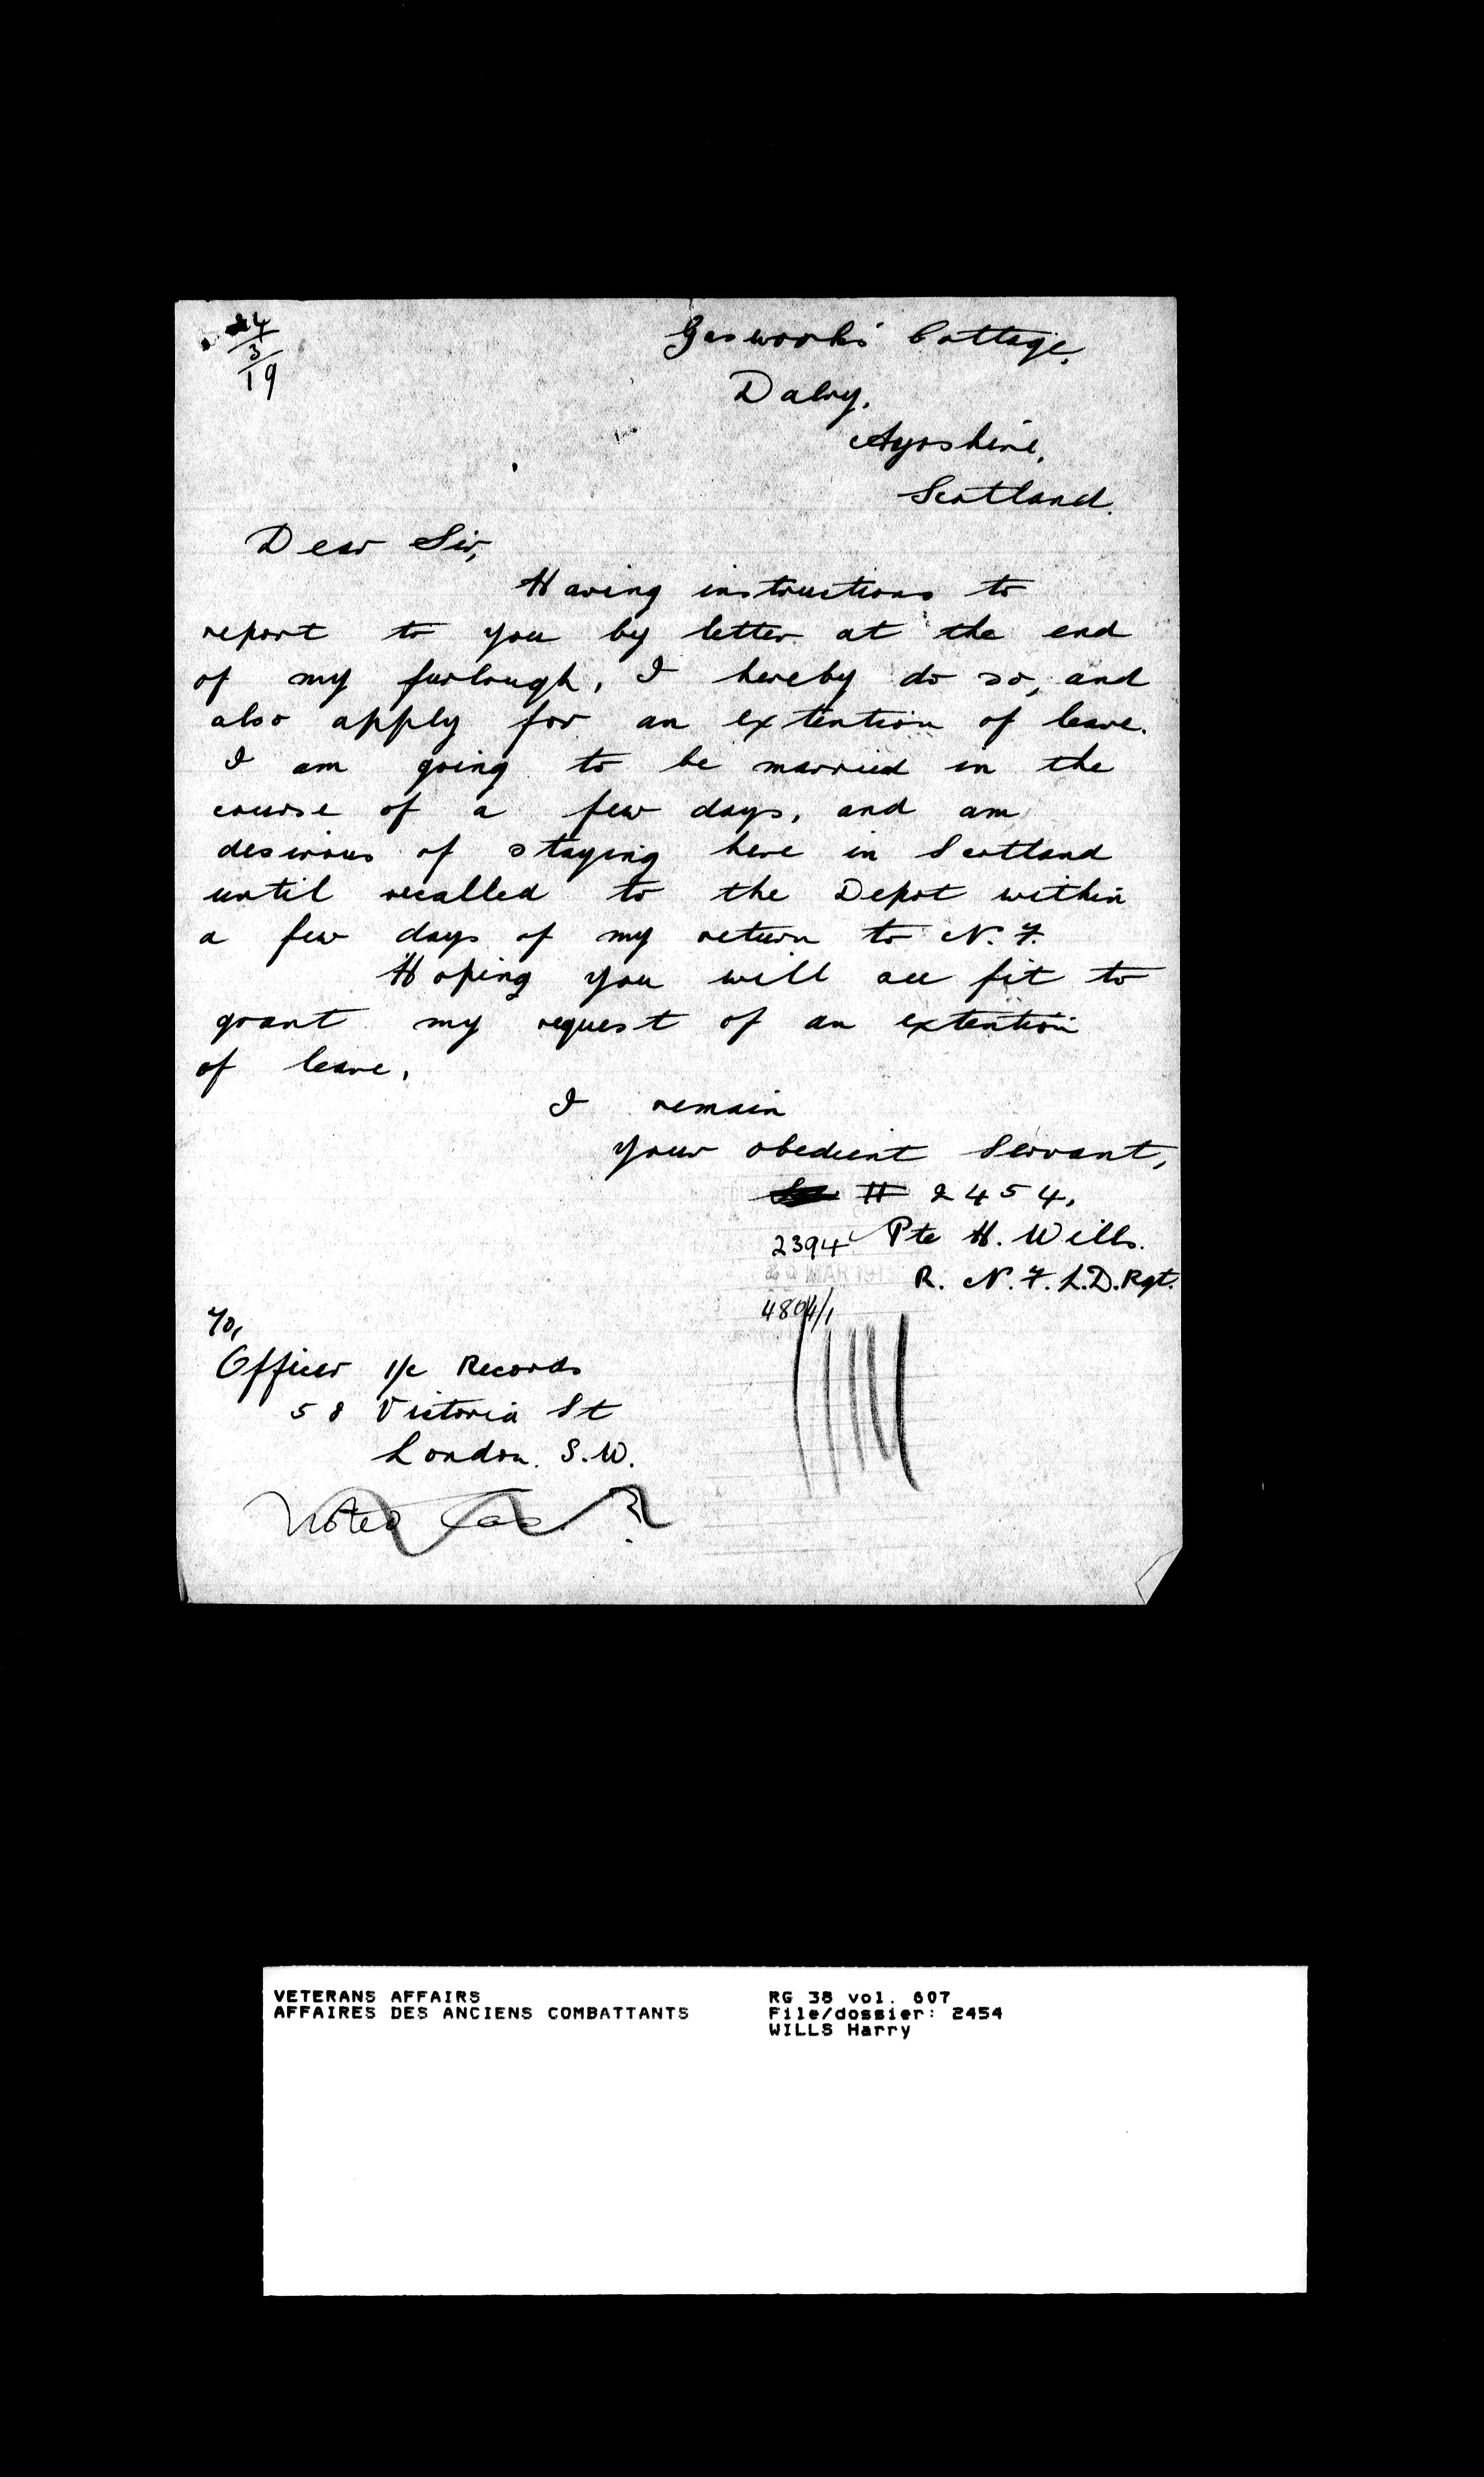 24
3
19
Gasworks' Cottage,
Dalry,
Ayrshire,
Scotland.
Dear Sir,
Having instructions to
report to you by letter at the end
of my furlough, I hereby do so, and
also apply for an extention of leave.
I am going to be married in the
course of a few days, and am
desirous of staying here in Scotland
until recalled to the Depot within
a few days of my return to N.F.
Hoping you will see fit to
grant my request of an extention
of leave,
I remain
your obedient Servant,
# 2454,
2394 Pte H. Wills.
MAR 191
R. N.F.L.D. Rgt.
4804/1
To,
Officer i/c Records
58 Victoria St
London. S.W.
Noted
VETERANS AFFAIRS
AFFAIRES DES ANCIENS COMBATTANTS
RG 38 vol. 607
File/dossier: 2454
WILLS Harry